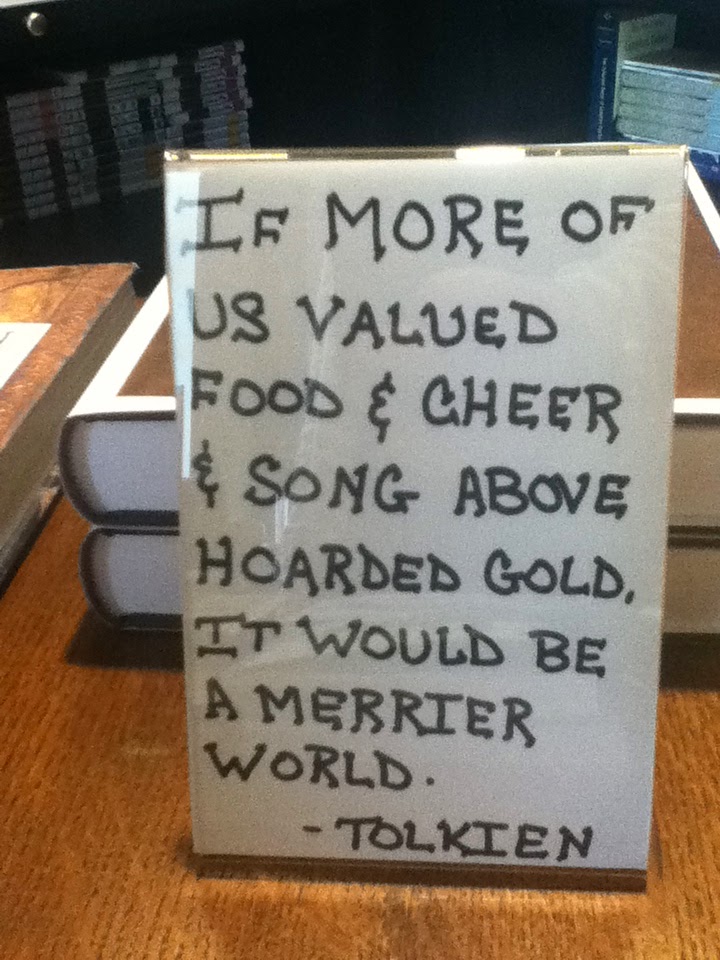 IF MORE OF
US VALUED
FOOD & CHEER
& SONG ABOVE
HOARDED GOLD,
IT WOULD BE
A MERRIER
WORLD.
- TOLKIEN